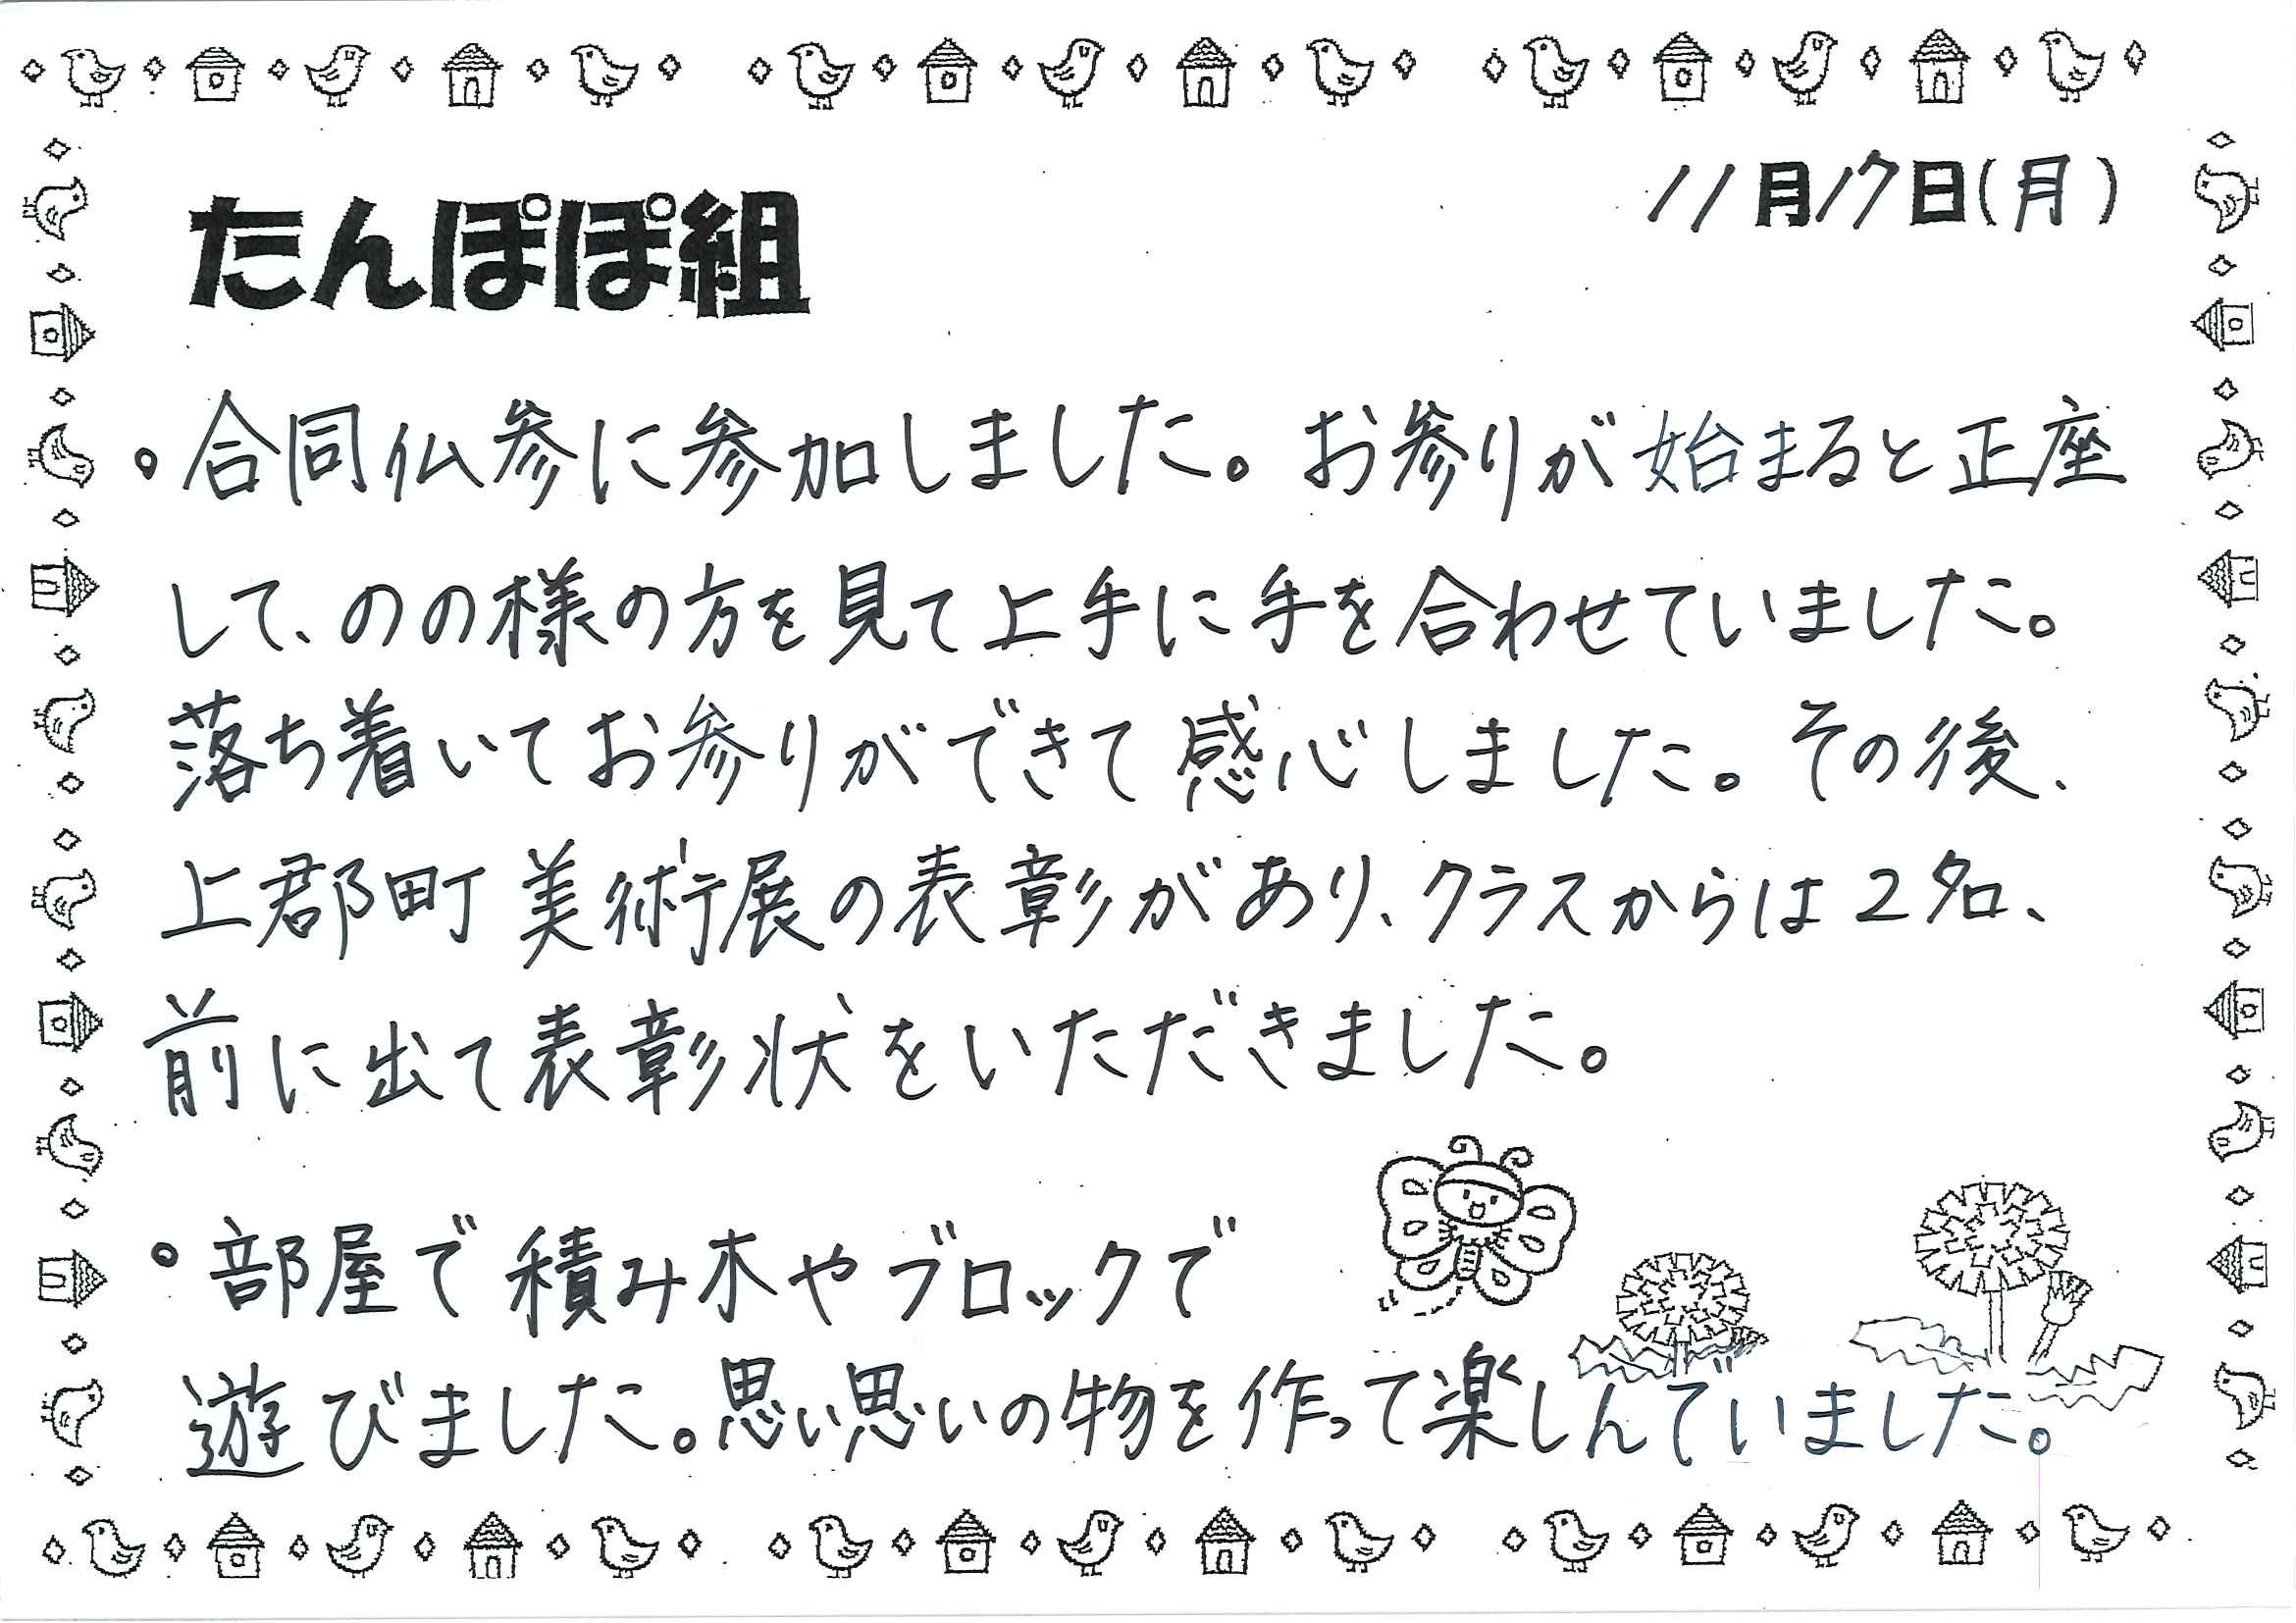 11月17日(月)
たんぽぽ組
。合同仏参に参加しました。お参りが始まると正座
して、のの様の方を見て上手に手を合わせていました。
落ち着いてお参りができて感心しました。その後、
上郡町美術展の表彰があり、クラスからは2名、
前に出て表彰状をいただきました。
。部屋で積み木やブロックで
遊びました。思い思いの物を作って楽しんでいました。